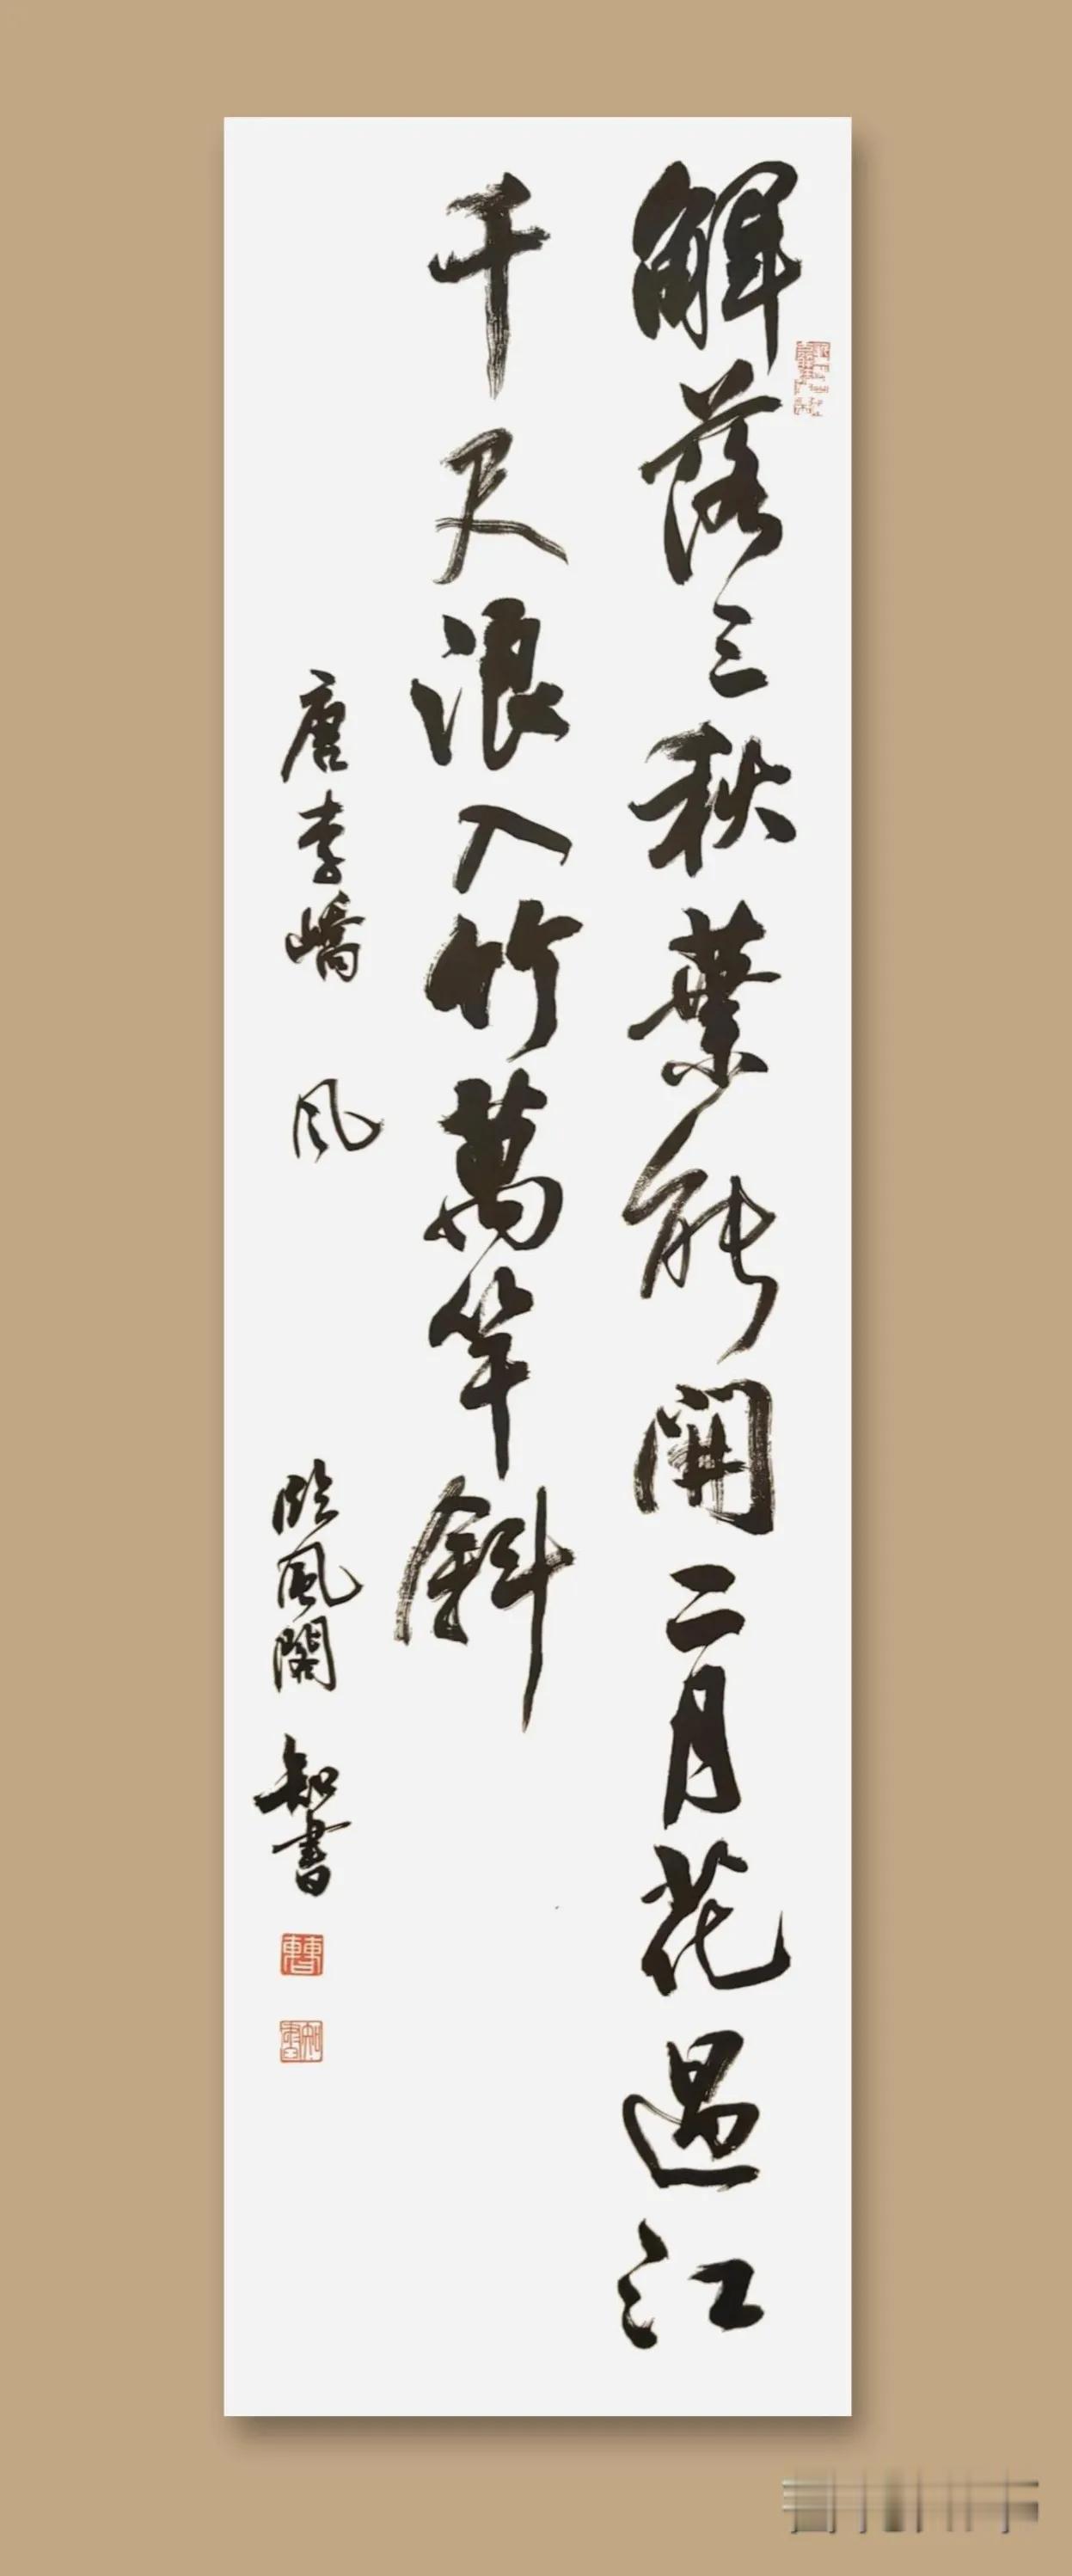 解落三秋葉能開二月花過江
千尺浪入竹萬竿斜
唐李嶠 風
臨風閣 知書